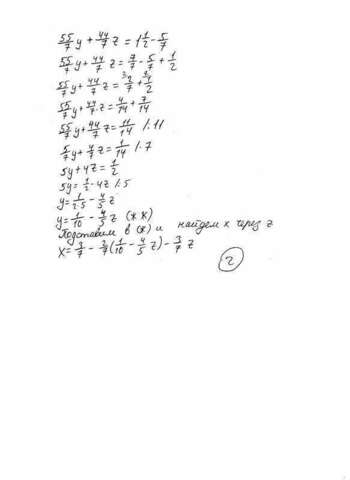 55/7 y + 44/7 z = 1 1/2 - 5/7
55/7 y + 44/7 z = 7/7 - 5/7 + 1/2
55/7 y + 44/7 z = 2/7 + 1/2
55/7 y + 44/7 · z = 4/14 + 7/14
55/7 y + 44/7 z = 11/14 /:11
5/7 y + 4/7 z = 1/14 /·7
5y + 4z = 1/2
5y = 1/2 - 4z /:5
y = 1/2·5 - 4/5 z
y = 1/10 - 4/5 z (жж)
Подставим в (ж) и найдем x через z
x = 3/7 - 2/7 (1/10 - 4/5 z) - 3/7 z
2